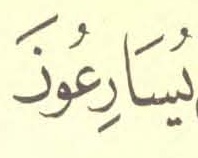 يُسَارِعُونَ